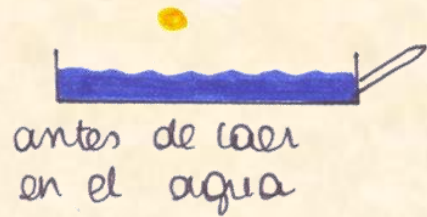 antes de caer
en el agua